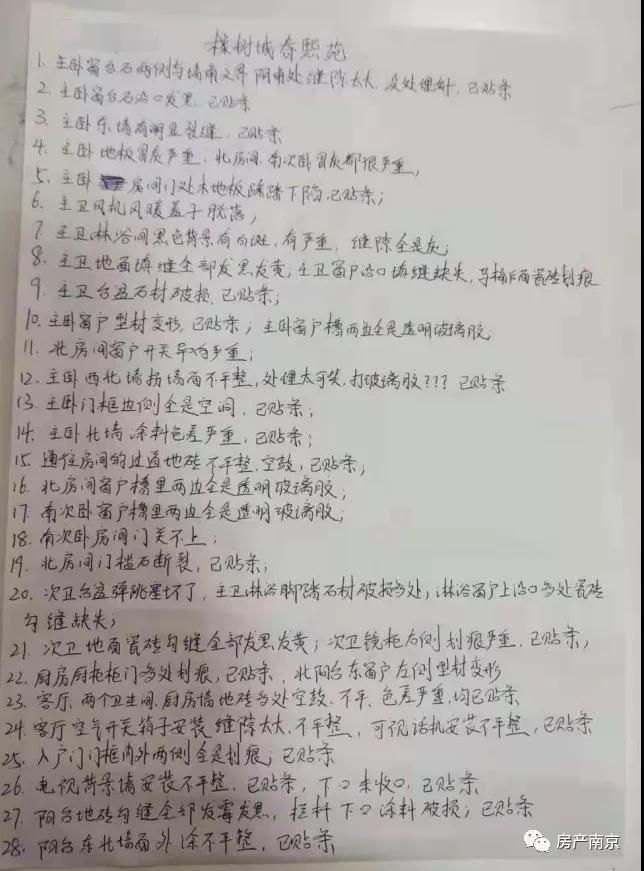 橡树城春熙苑
1. 主卧窗台石两侧与墙角交界阴角处缝隙太大,没处理好,已贴条
2. 主卧窗台石沿口发黑,已贴条
3. 主卧东墙有明显裂缝,已贴条
4. 主卧地板冒灰严重,北房间,南次卧冒灰都很严重,
5. 主卧房间门处木地板踩踏下陷,已贴条;
6. 主卫风机风暖盖子脱落,
7. 主卫淋浴间黑色背景有白斑,有严重,缝隙全是灰;
8. 主卫地面填缝全部发黑发黄;主卫窗户沿口填缝缺失,马桶后面瓷砖划痕
9. 主卫台盆石材破损,已贴条;
10. 主卧窗户型材变形,已贴条;主卧窗户槽两边全是透明玻璃胶
11. 北房间窗户开关异响严重;
12. 主卧西北墙拐墙面不平整,处理太可笑,打玻璃胶???已贴条
13. 主卧门框边侧全是空洞,已贴条;
14. 主卧北墙涂料色差严重,已贴条;
15. 通往房间的过道地砖不平整,空鼓,已贴条;
16. 北房间窗户槽里两边全是透明玻璃胶;
17. 南次卧窗户槽里两边全是透明玻璃胶;
18. 南次卧房间门关不上;
19. 北房间门槛石断裂,已贴条;
20. 次卫台盆弹跳塞坏了,主卫淋浴脚踏石材破损多处;淋浴窗户上沿口多处瓷砖
勾缝缺失;
21. 次卫地面瓷砖勾缝全部发黑发黄;次卫镜柜右侧划痕严重,已贴条,
22. 厨房厨柜柜门多处划痕,已贴条,北阳台东窗户左侧型材变形
23. 客厅、两个卫生间、厨房墙地砖多处空鼓、不平、色差严重,均已贴条
24. 客厅空气开关箱子安装缝隙太大,不平整,可视话机安装不平整,已贴条
25. 入户门门框内外两侧全是划痕;已贴条
26. 电视背景墙安装不平整,已贴条,下口未收口,已贴条
27. 阳台地砖勾缝全部发霉发黑,栏杆下口涂料破损;已贴条
28. 阳台东北墙面外涂不平整,已贴条
房产南京